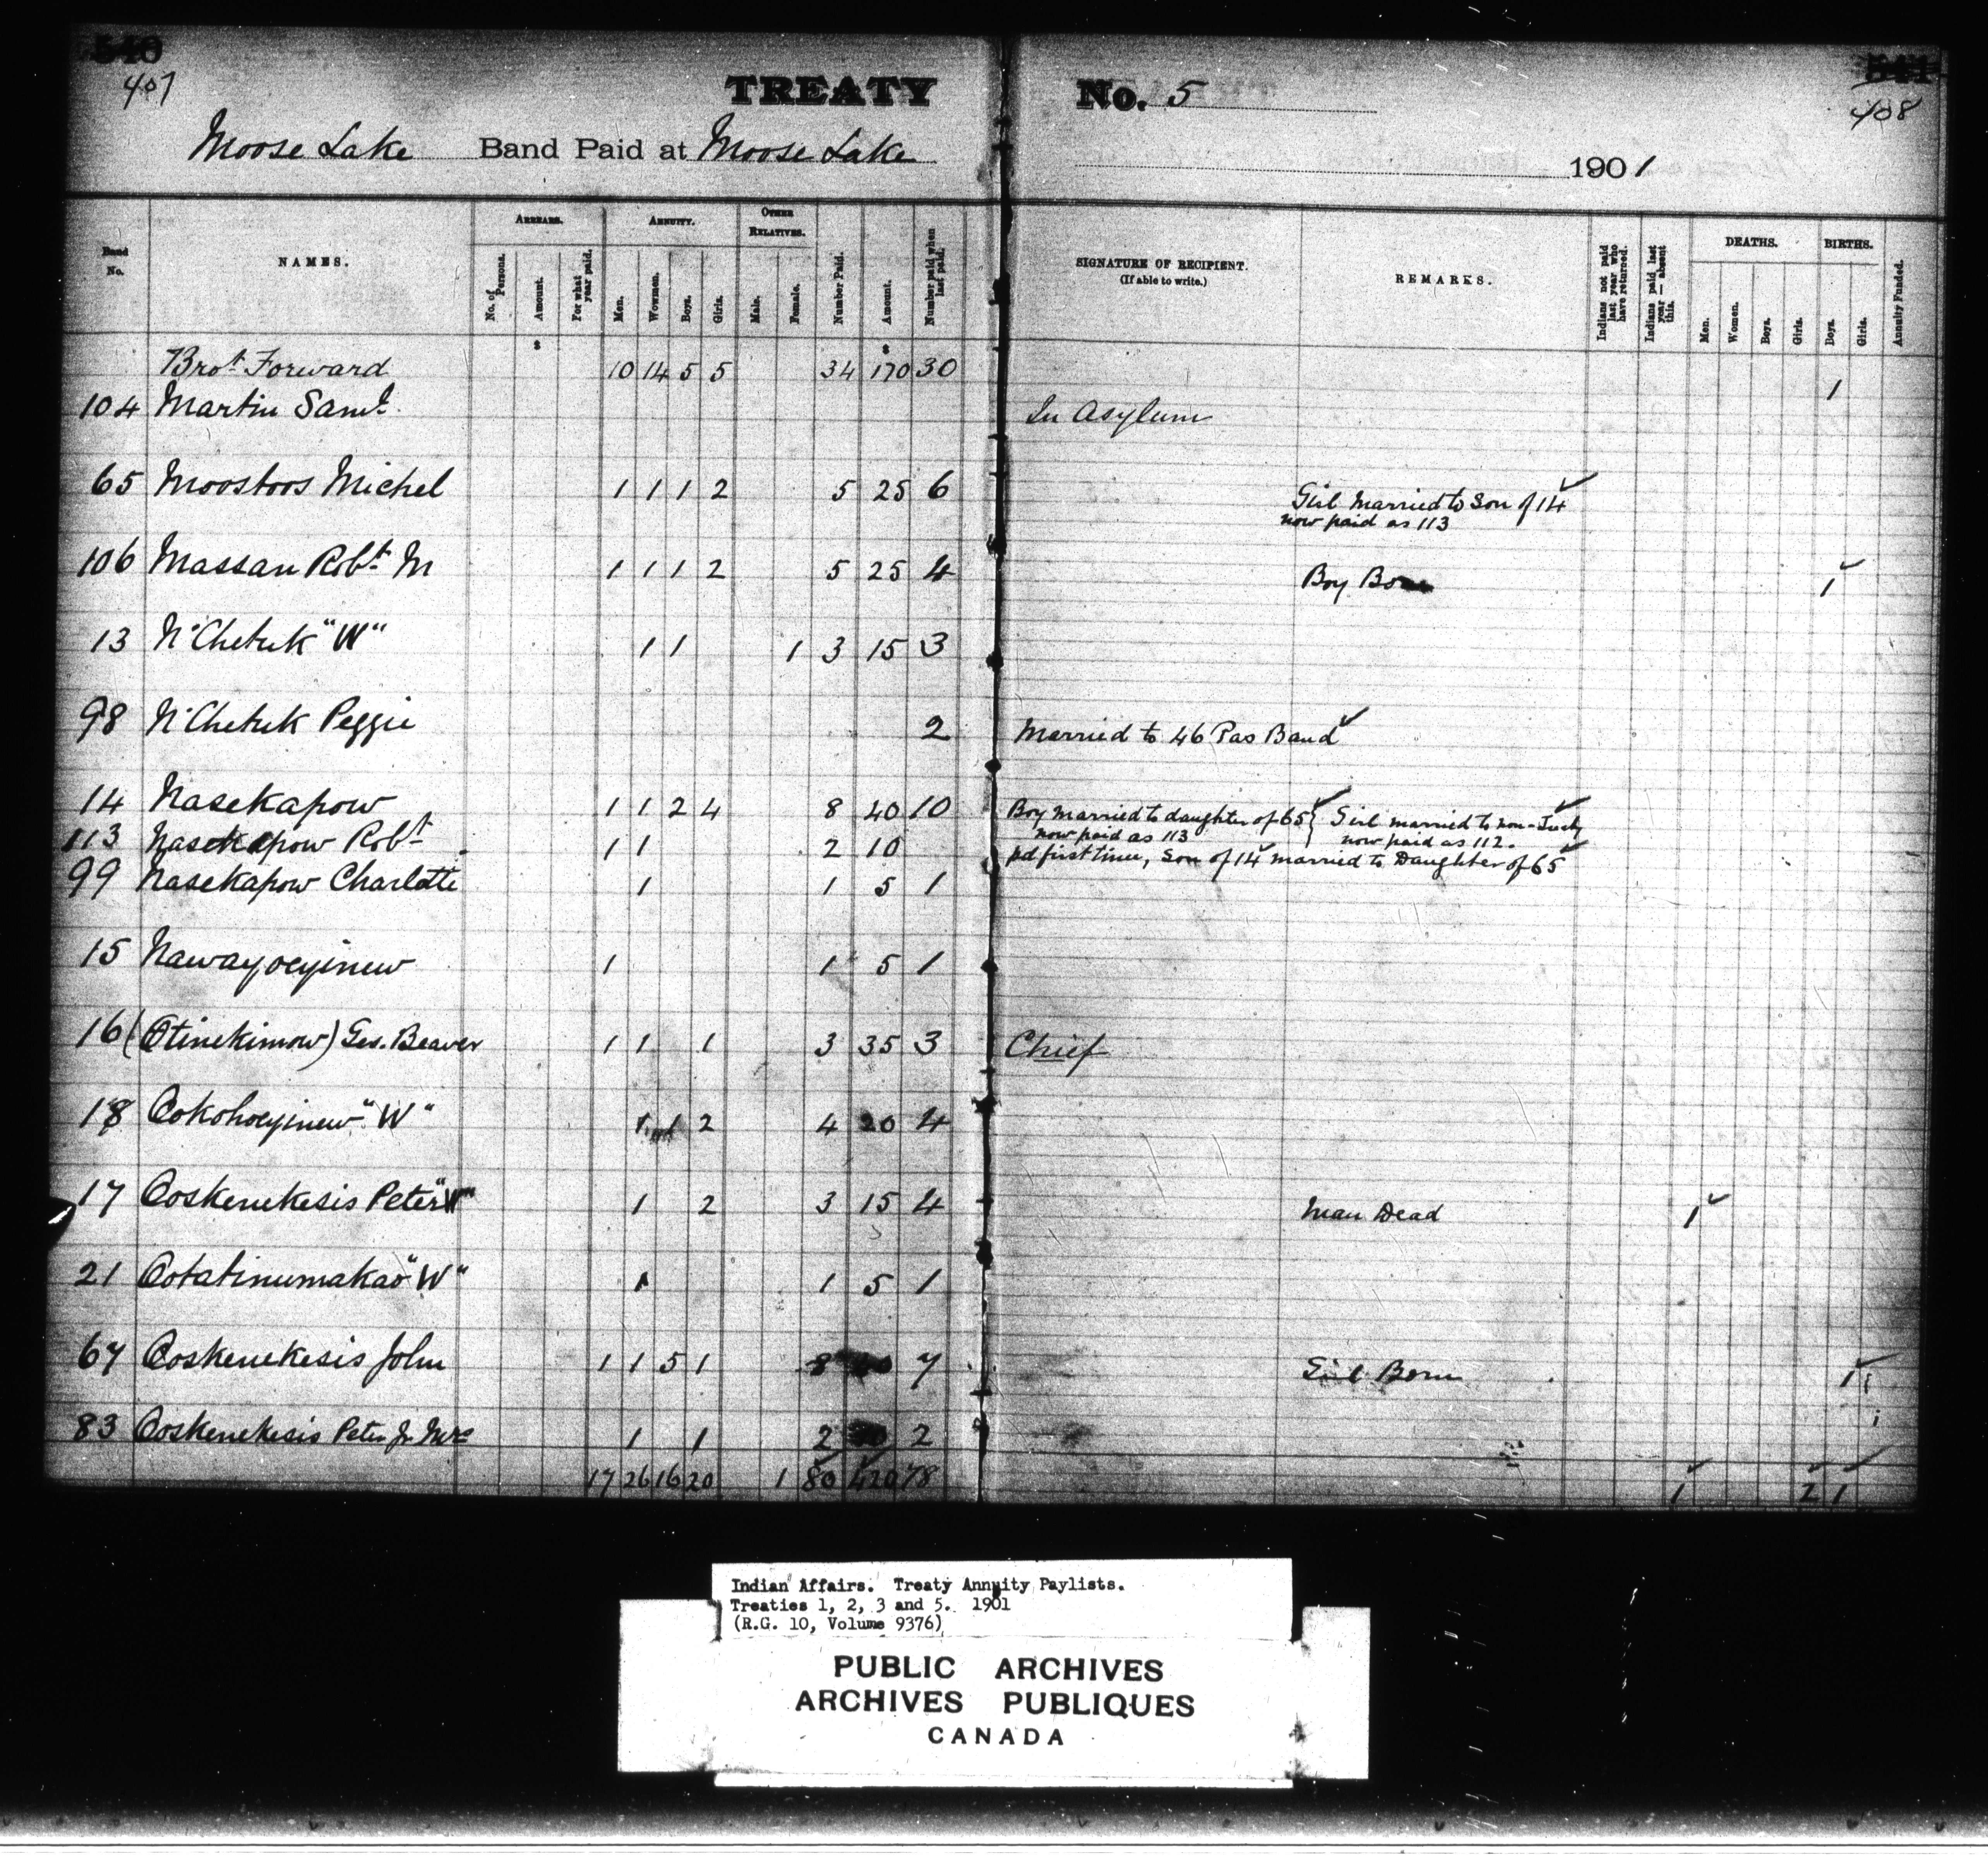 540 541
407 408
TREATY No. 5
Moose Lake Band Paid at Moose Lake 1901
Band No. NAMES. ARREARS. No. of Persons. Amount. For what year paid. ANNUITY. Men. Women. Boys. Girls. OTHER RELATIVES. Male. Female. Number Paid. Amount. Number paid when last paid. SIGNATURE OF RECIPIENT. (If able to write.) REMARKS. Indians not paid last year who have returned. Indians paid last year — absent this. DEATHS. Men. Women. Boys. Girls. BIRTHS. Boys. Girls. Annuity Funded.
$ $
Brot. Forward 10 14 5 5 34 170 30 1
104 Martin Saml. In Asylum
65 Moostoos Michel 1 1 1 2 5 25 6 Girl Married to Son of 14
now paid as 113
106 Massan Robt. M 1 1 1 2 5 25 4 Boy Born 1
13 N'Chetuk "W" 1 1 1 3 15 3
98 N'Chetuk Peggie 2 Married to 46 Pas Band
14 Nasekapow 1 1 2 4 8 40 10 Boy married to daughter of 65 } Girl married to non-Treaty
now paid as 113 now paid as 112.
113 Nasekapow Robt 1 1 2 10 pd first time, Son of 14 married to Daughter of 65
99 Nasekapow Charlotte 1 1 5 1
15 Nawayoeyinew 1 1 5 1
16 (Otinekimow) Geo. Beaver 1 1 1 3 35 3 Chief
18 Ookohoeyinew "W" 1 1 2 4 20 4
17 Ooskenekesis Peter "W" 1 2 3 15 4 Man Dead 1
21 Ootatinumakao "W" 1 1 5 1
67 Ooskenekesis John 1 1 5 1 8 40 7 Girl Born 1
83 Ooskenekesis Peter Jr Mrs 1 1 2 10 2
17 26 16 20 1 80 420 78 1 2 1
Indian Affairs. Treaty Annuity Paylists.
Treaties 1, 2, 3 and 5. 1901
(R.G. 10, Volume 9376)
PUBLIC ARCHIVES
ARCHIVES PUBLIQUES
CANADA